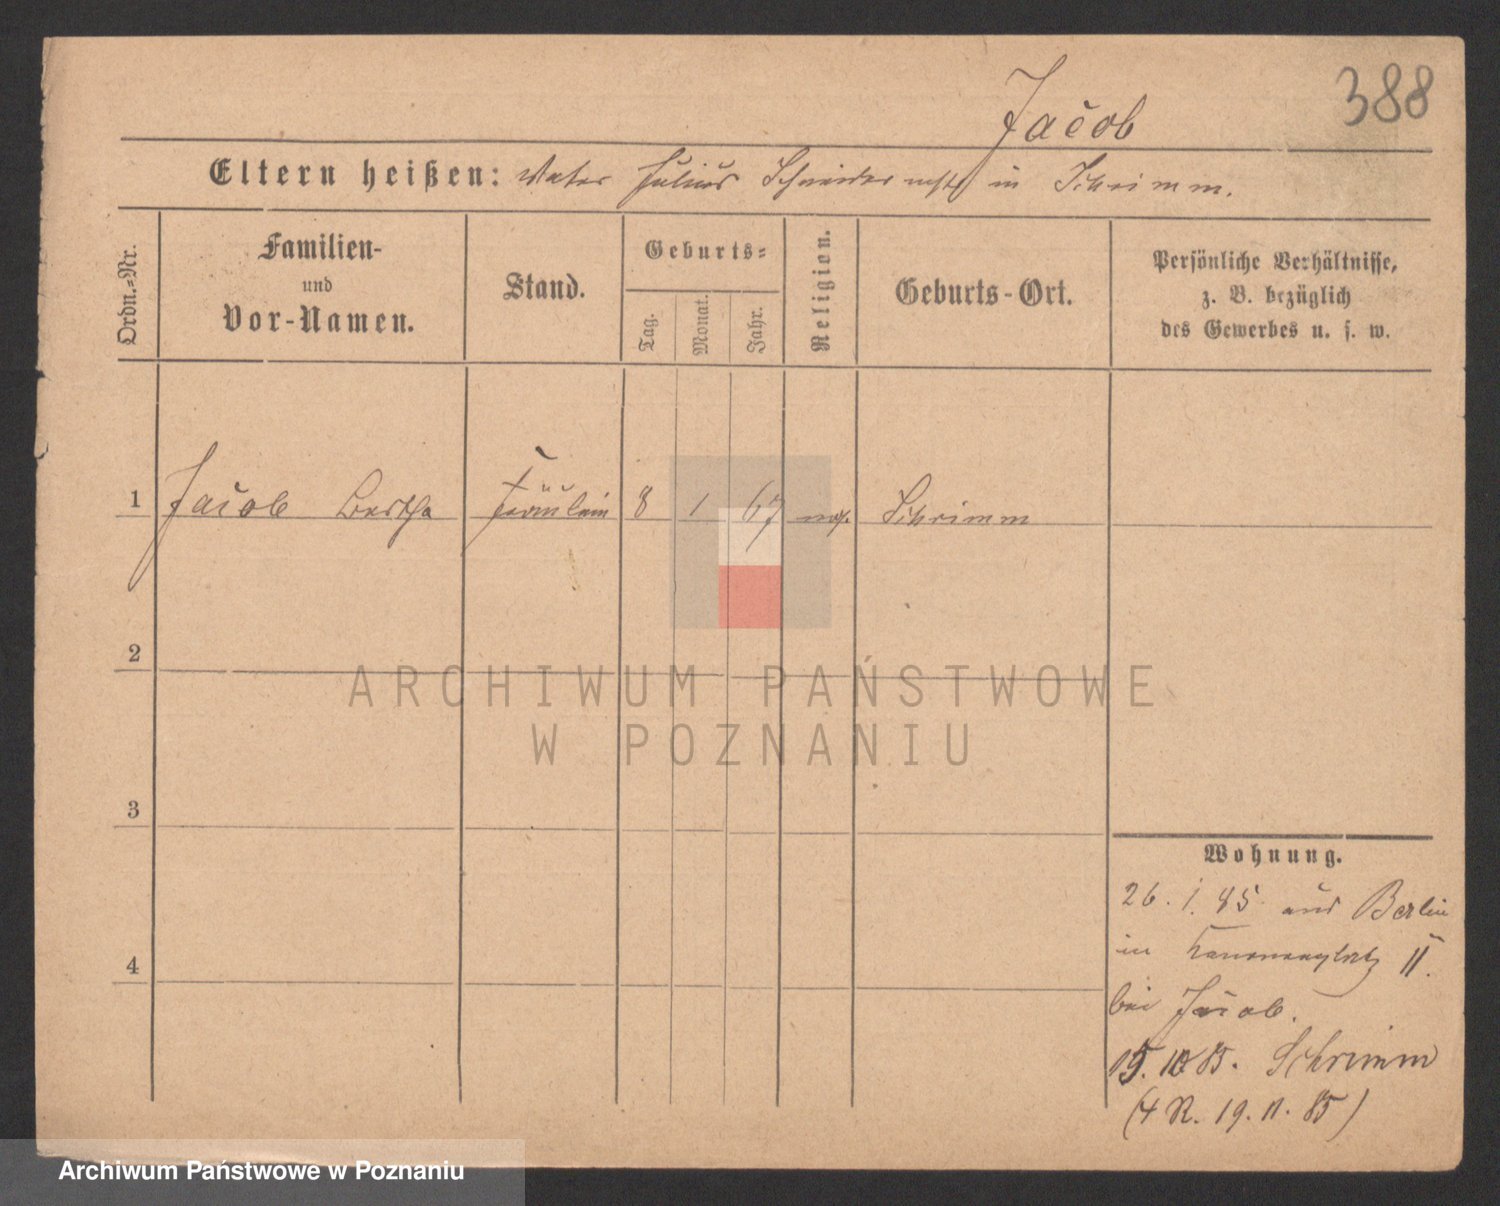 388
Jacob
Eltern heißen: Vater Julius Schneidermstr in Schrimm.
Ordn.-Nr.
Familien-
und
Vor-Namen.
Stand.
Geburts=
Tag.
Monat.
Jahr.
Religion.
Geburts-Ort.
Persönliche Verhältnisse,
z. B. bezüglich
des Gewerbes u. s. w.
1 Jacob Bertha Fräulein 8 1 67 mos. Schrimm
2
ARCHIWUM PAŃSTWOWE
W POZNANIU
3
Wohnung.
26. 1. 85 aus Berlin
4
in Kanonenplatz 11.
bei Jacob.
15. 10 85. Schrimm
(4 R. 19. 11. 85)
Archiwum Państwowe w Poznaniu